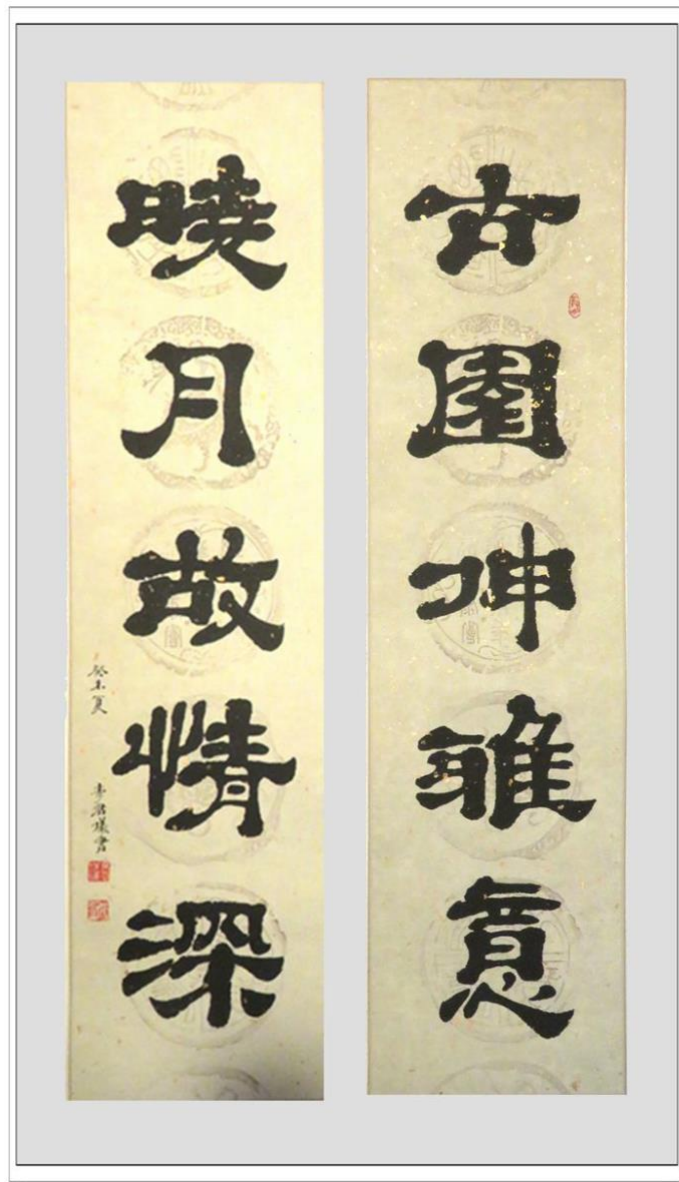 古園伸雅意
曉月故情深
癸未夏
書